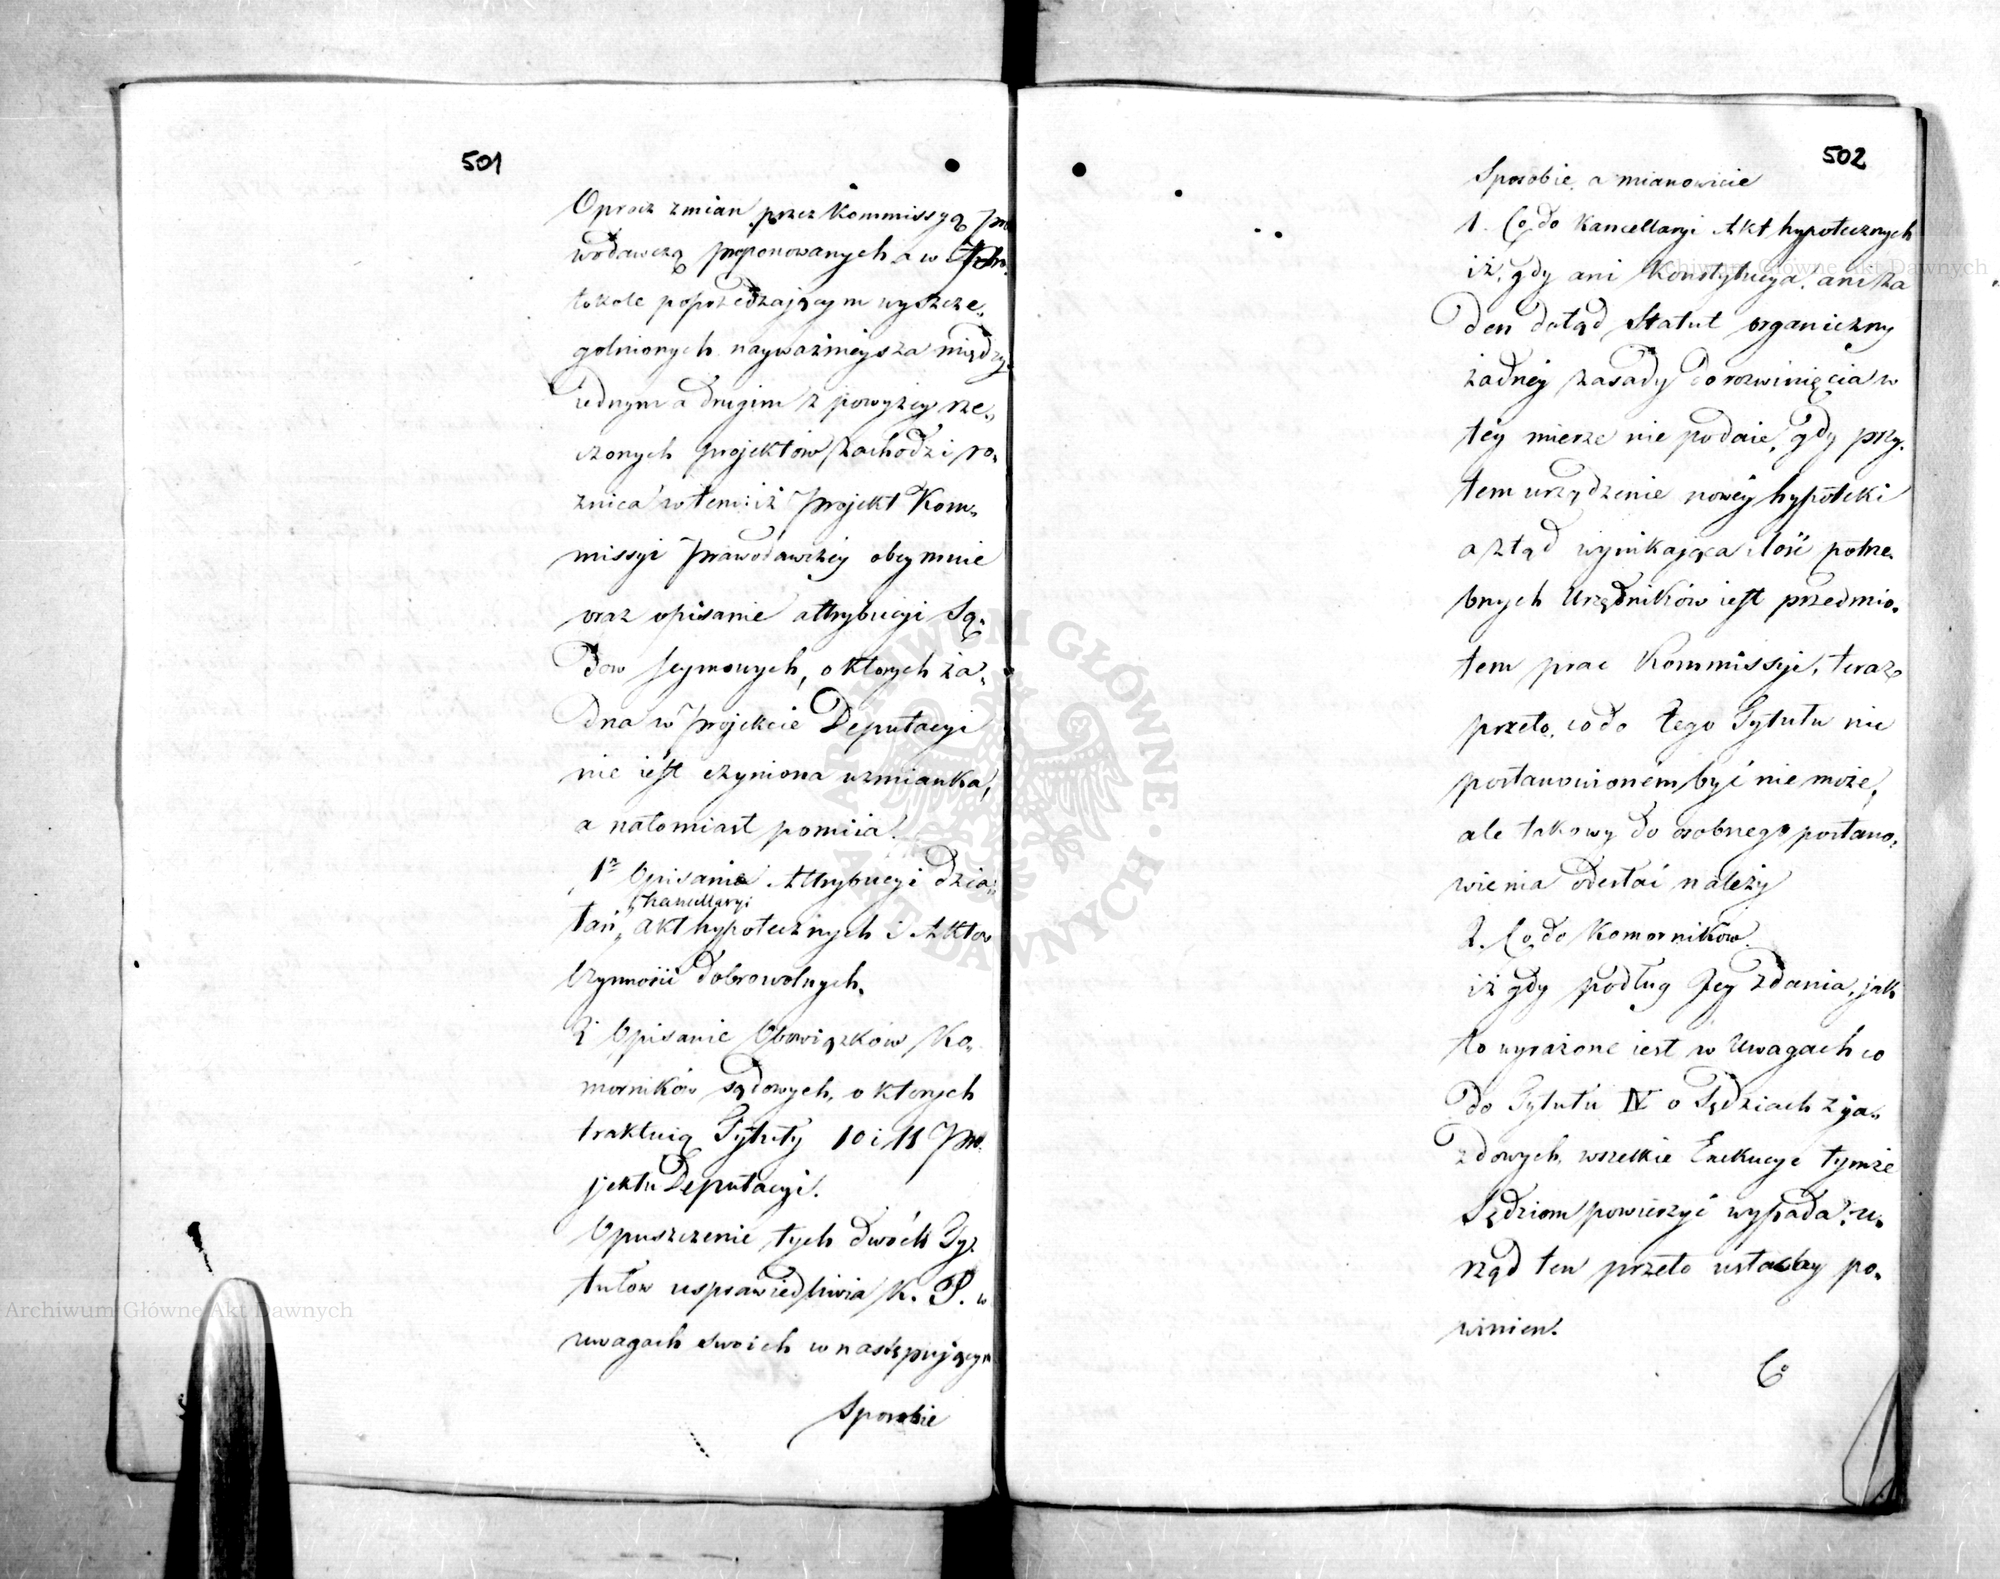 501
Oprocz zmian przez Kommissyą Pra
wodawczą proponowanych a w Proto
tokole poprzedzającym wyszcze,
gulnionych naywaznieysza między
iednym a drugim z powyżey rze,
czonych projektów zachodzi ro,
znica w tem: iż projekt Kom,
missyi Prawodawczey obeymuie
oraz opisanie attrybucyi Są,
dow Seymowych, o ktorych ża,
dna w projekcie Deputacyi
nie iest czyniona wzmianka,
a natomiast pomiia.
1º Opisanie Attrybucyi dzia,
Kancellaryi
łań, akt hypotecznych i Aktow
Czynności dobrowolnych.
2º Opisanie Obowiązków Ko,
morników sądowych, o ktorych
traktuią Tytuły 10 i 11 Pro,
jektu Deputacyi.
Opuszczenie tych dwóch Ty,
tułow usprawiedliwia K. P. w
uwagach swoich w nastepującym
Sposobie
502
Sposobie, a mianowicie
1. Co do Kancellaryi Akt hypotecznych
iż, gdy ani Konstytucya, ani ża
den dotąd Statut organiczny
żadney zasady do rozwinięcia w
tey mierze nie podaie, gdy przy,
tem urządzenie nowey hypoteki
a ztąd wynikająca ilość potrze,
bnych Urzędników iest przedmio,
tem prac Kommissyi, teraz
przeto, co do tego Tytułu nic
postanowionem być nie może,
ale takowy do osobnego postano,
wienia odesłać należy
2. Co do Komorników.
iż gdy podług Jey zdania, jak
to wyrażone iest w Uwagach co
do Tytułu IV o Sędziach zja,
zdowych, wszelkie Exekucye tymże
Sędziom powierzyć wypada, u,
rząd ten przeto ustać by po,
winien.
Co
Archiwum Główne Akt Dawnych
Archiwum Główne Akt Dawnych
ARCHIWUM GŁÓWNE AKT DAWNYCH